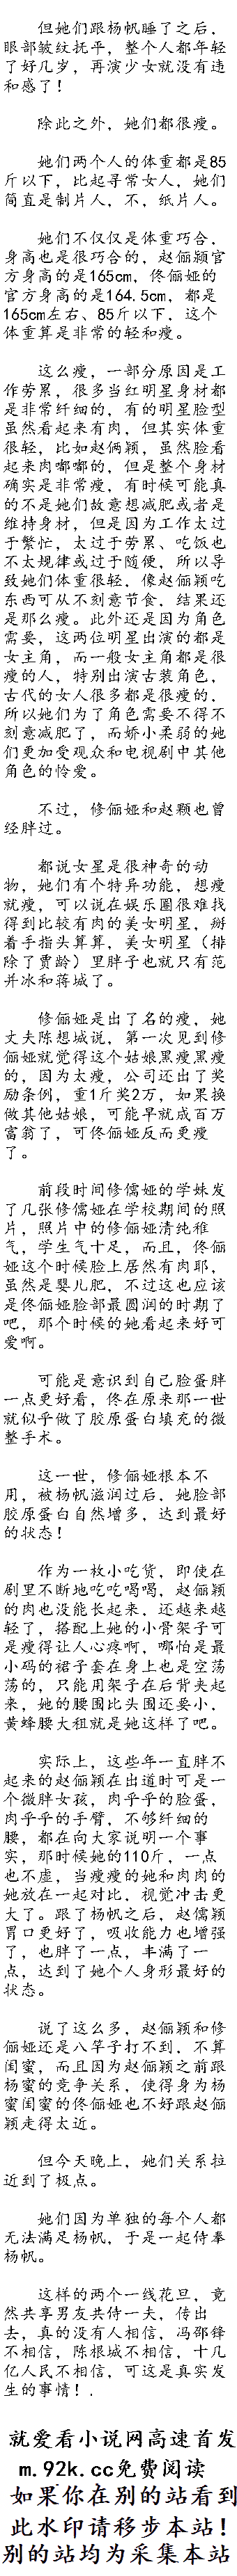 但她们跟杨帆睡了之后，
眼部皱纹抚平，整个人都年轻
了好几岁，再演少女就没有违
和感了！
除此之外，她们都很瘦。
她们两个人的体重都是85
斤以下，比起寻常女人，她们
简直是制片人，不，纸片人。
她们不仅仅是体重巧合，
身高也是很巧合的，赵俪颖官
方身高的是165cm，佟俪娅的
官方身高的是164.5cm，都是
165cm左右、85斤以下，这个
体重算是非常的轻和瘦。
这么瘦，一部分原因是工
作劳累，很多当红明星身材都
是非常纤细的，有的明星脸型
虽然看起来有肉，但其实体重
很轻，比如赵俩颖，虽然脸看
起来肉嘟嘟的，但是整个身材
确实是非常瘦，有时候可能真
的不是她们故意想减肥或者是
维持身材，但是因为工作太过
于繁忙，太过于劳累、吃饭也
不太规律或过于随便，所以导
致她们体重很轻，像赵俪颖吃
东西可从不刻意节食，结果还
是那么瘦。此外还是因为角色
需要，这两位明星出演的都是
女主角，而一般女主角都是很
瘦的人，特别出演古装角色，
古代的女人很多都是很瘦的，
所以她们为了角色需要不得不
刻意减肥了，而娇小柔弱的她
们更加受观众和电视剧中其他
角色的怜爱。
不过，修俪娅和赵颗也曾
经胖过。
都说女星是很神奇的动
物，她们有个特异功能，想瘦
就瘦，可以说在娱乐圈很难找
得到比较有肉的美女明星，掰
着手指头算算，美女明星（排
除了贾龄）里胖子也就只有范
并冰和蒋城了。
修俪娅是出了名的瘦，她
丈夫陈想城说，第一次见到修
俪娅就觉得这个姑娘黑瘦黑瘦
的，因为太瘦，公司还出了奖
励条例，重1斤奖2万，如果换
做其他姑娘，可能早就成百万
富翁了，可佟俪娅反而更瘦
了。
前段时间修儒娅的学妹发
了几张修儒娅在学校期间的照
片，照片中的修俪娅清纯稚
气，学生气十足，而且，佟俪
娅这个时候脸上居然有肉耶，
虽然是婴儿肥，不过这也应该
是佟俪娅脸部最圆润的时期了
吧，那个时候的她看起来好可
爱啊。
可能是意识到自己脸蛋胖
一点更好看，佟在原来那一世
就似乎做了胶原蛋白填充的微
整手术。
这一世，修俪娅根本不
用，被杨帆滋润过后，她脸部
胶原蛋白自然增多，达到最好
的状态！
作为一枚小吃货，即使在
剧里不断地吃吃喝喝，赵俪颖
的肉也没能长起来，还越来越
轻了，搭配上她的小骨架子可
是瘦得让人心疼啊，哪怕是最
小码的裙子套在身上也是空荡
荡的，只能用架子在后背夹起
来，她的腰围比头围还要小，
黄蜂腰大租就是她这样了吧。
实际上，这些年一直胖不
起来的赵俪颖在出道时可是一
个微胖女孩，肉乎乎的脸蛋，
肉乎乎的手臂，不够纤细的
腰，都在向大家说明一个事
实，那时候她的110斤，一点
也不虚，当瘦瘦的她和肉肉的
她放在一起对比，视觉冲击更
大了。跟了杨帆之后，赵儒颖
胃口更好了，吸收能力也增强
了，也胖了一点，丰满了一
点，达到了她个人身形最好的
状态。
说了这么多，赵俪颖和修
俪娅还是八竿子打不到，不算
闺蜜，而且因为赵俪颖之前跟
杨蜜的竞争关系，使得身为杨
蜜闺蜜的佟俪娅也不好跟赵俪
颖走得太近。
但今天晚上，她们关系拉
近到了极点。
她们因为单独的每个人都
无法满足杨帆，于是一起侍奉
杨帆。
这样的两个一线花旦，竟
然共享男友共侍一夫，传出
去，真的没有人相信，冯邵锋
不相信，陈根城不相信，十几
亿人民不相信，可这是真实发
生的事情！.
就爱看小说网高速首发
m.92k.cc免费阅读
如果你在别的站看到
此水印请移步本站！
别的站均为采集本站